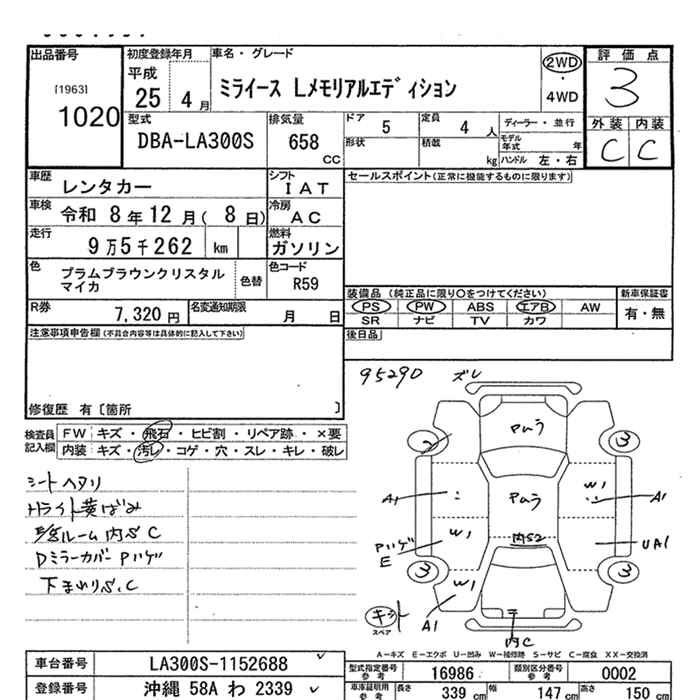 出品番号
[1963]
1020
初度登録年月
平成
25 4 月
車名・グレード
ミライース Lメモリアルエディション
2WD
・
4WD
評価点
3
外装 内装
C C
型式
DBA-LA300S
排気量
658
CC
ドア 5
定員 4 人
ディーラー・並行
形状
積載 kg
モデル年式 年
ハンドル 左・右
車歴
レンタカー
シフト
IAT
セールスポイント(正常に機能するものに限ります)
車検 令和 8 年 12 月( 8 日)
冷房
AC
走行
9 万 5 千 262 km
燃料
ガソリン
色
プラムブラウンクリスタル
マイカ
色替
色コード
R59
装備品 (純正品に限り○をつけてください)
新車保証書
PS PW ABS エアB AW
SR ナビ TV カワ
有・無
R券
7,320 円
名変通知期限
月 日
後日品
注意事項申告欄(不具合内容等は具体的に記入して下さい)
修復歴 有〔箇所 〕
95290 ズレ
検査員
記入欄
FW キズ・飛石・ヒビ割・リペア跡・×要
内装 キズ・汚レ・コゲ・穴・スレ・キレ・破レ
シートヘタリ
Hライト黄ばみ
内S C
DミラーカバーPハゲ
下まわりS、C
Pムラ
2
3
A1
Pムラ
W1
A1
Pハゲ
E
W1
内S2
UA1
3
3
W1
A1
キズ
スペア
内C
A−キズ E−エクボ U−凹み W−補修跡 S−サビ C−腐食 XX−交換済
車台番号 LA300S-1152688
型式指定番号
参考
16986
類別区分番号
参考
0002
登録番号 沖縄 58A わ 2339
車庫証明用
参考
長さ 339 cm 幅 147 cm 高さ 150 cm